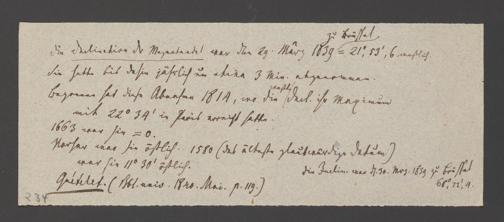 zu Brüssel
die Declination der Magnetnadel war den 29. März 1839 = 21° 53', 6 westlich.
Sie hatte bis dahin jährlich um etwa 3 Min. abgenommen.
westl.
Begonnen hat diese Abnahme 1814, wo die Decl. ihr Maximum
mit 22° 34' in Paris erreicht hatte.
1663 war sie = 0.
Vorher war sie östlich. 1580 (das älteste glaubwürdige Datum)
war sie 11° 30' östlich.
die Inclin. war d. 30. Mrz. 1839 zu Brüssel
68°
Quetelet. (Bibl. univ. 1840. Mai. p. 119.)
234